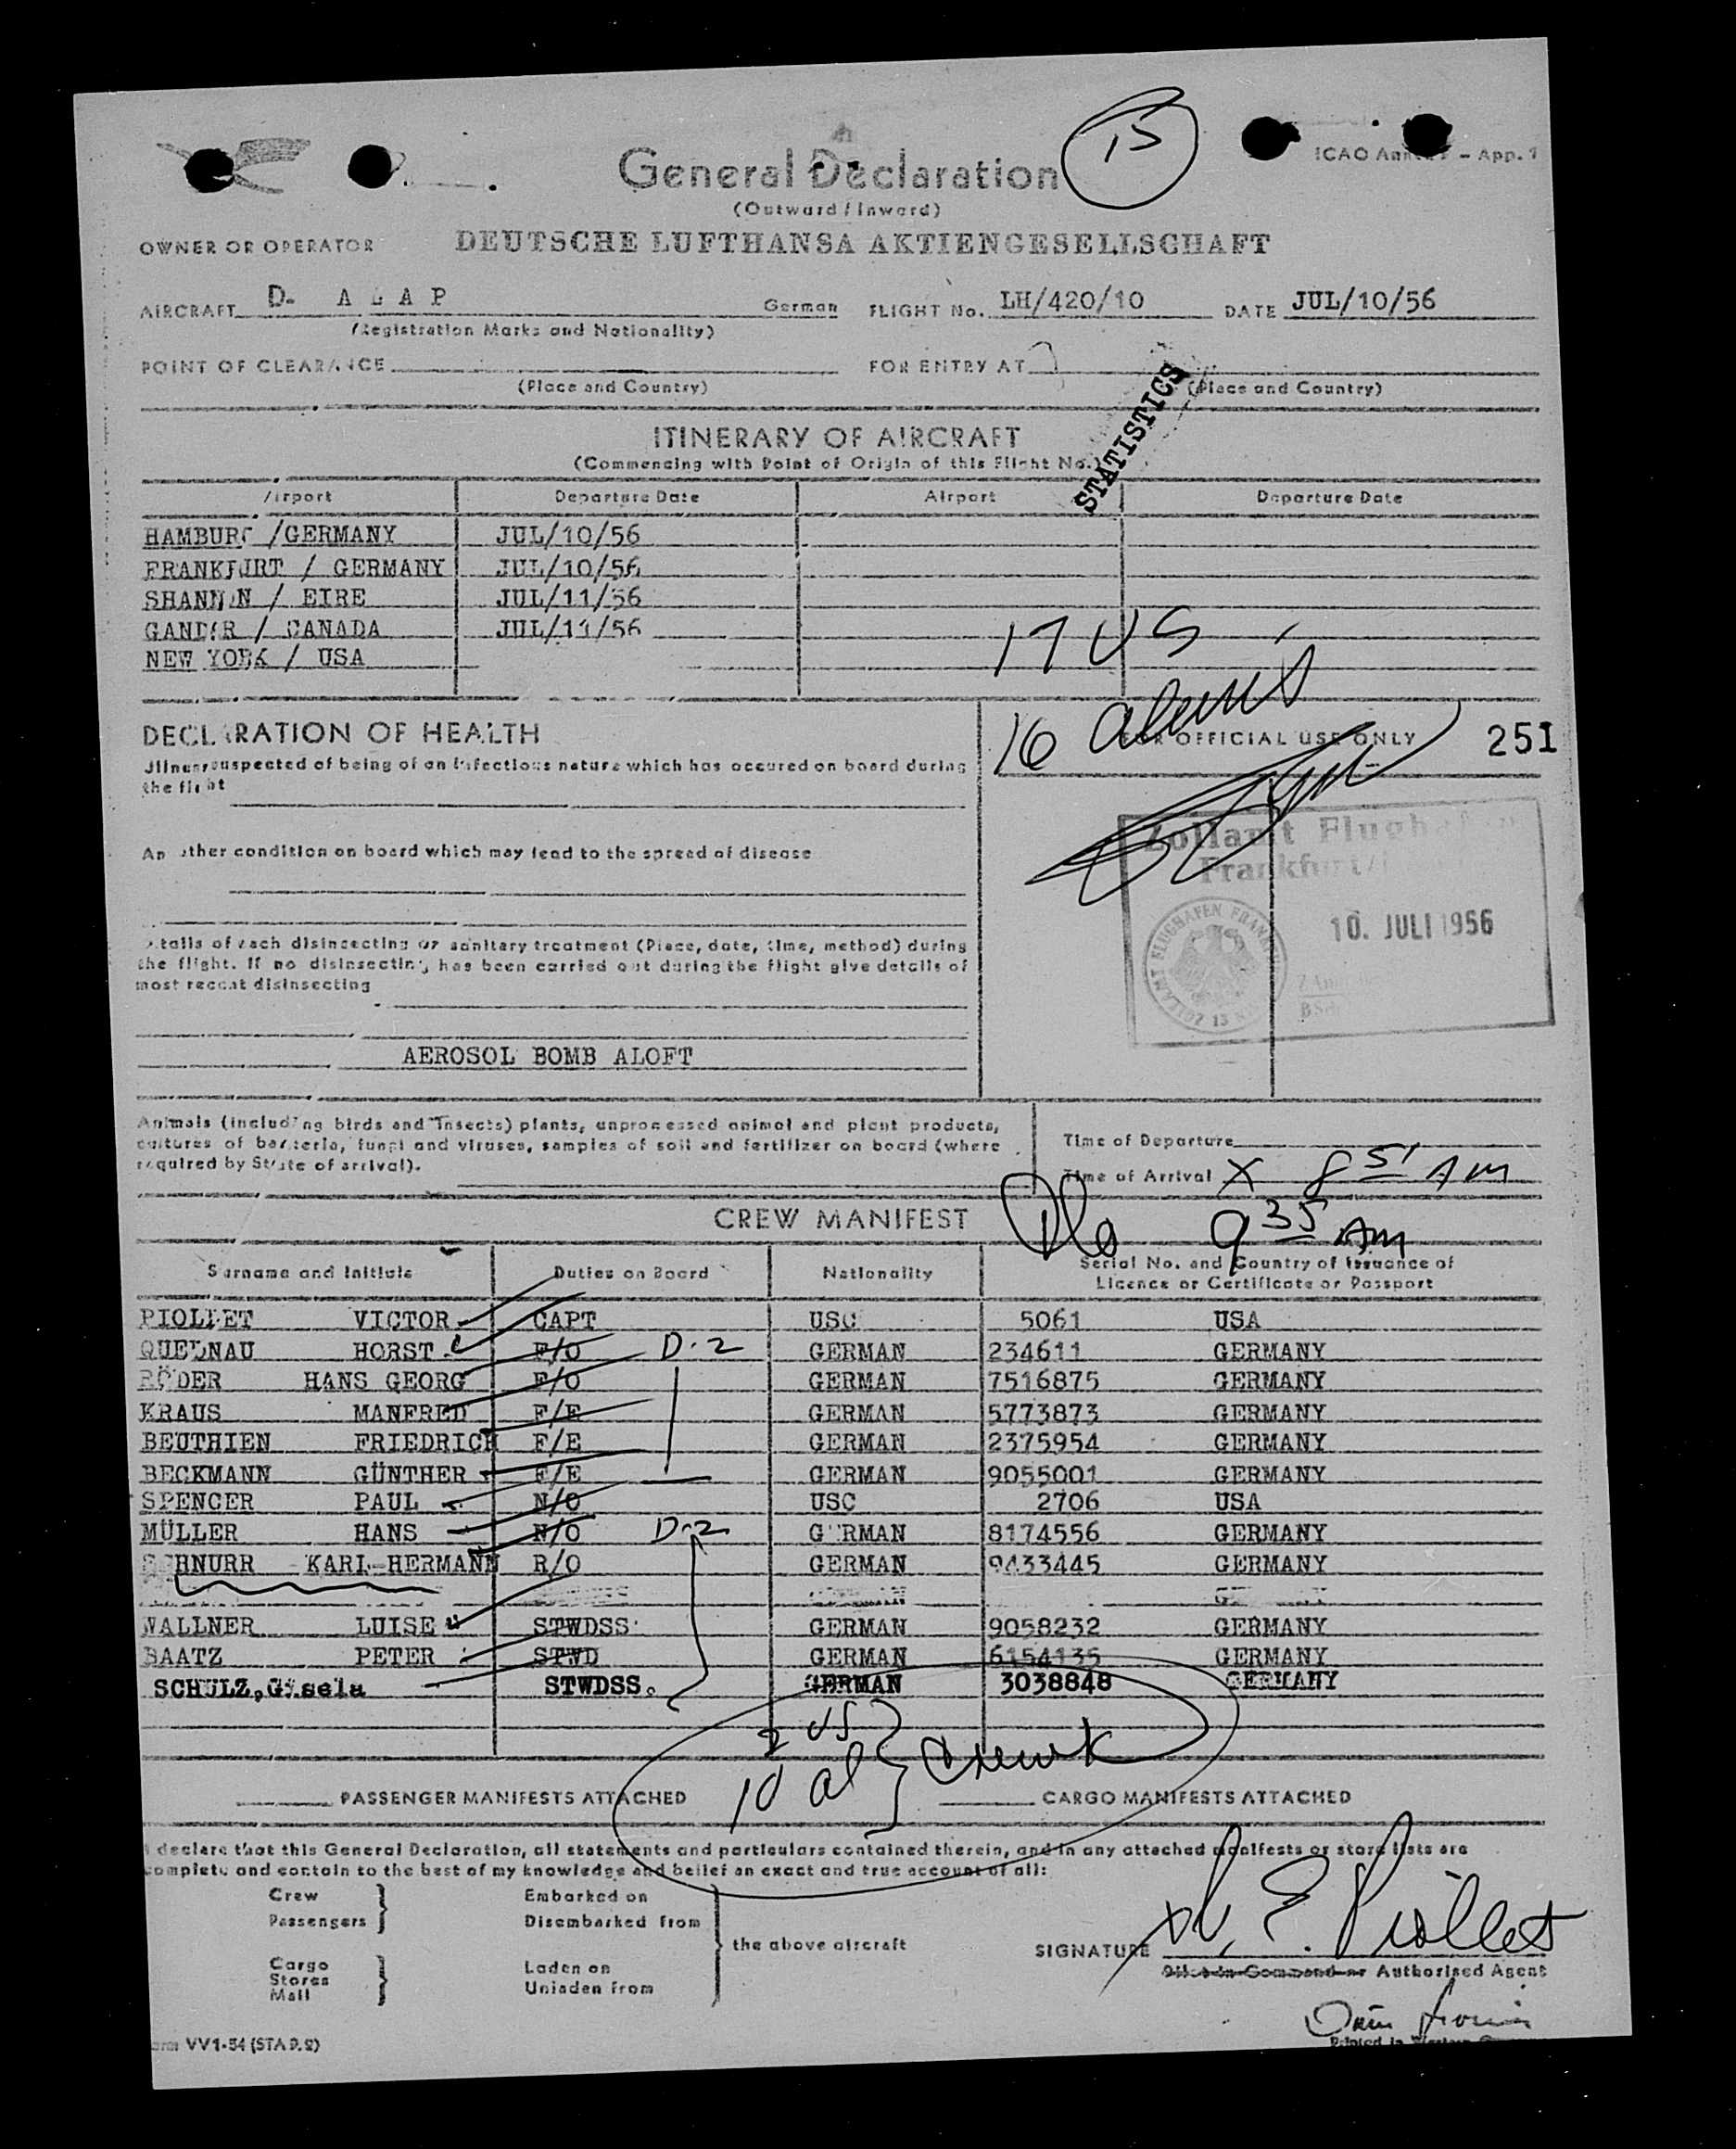 15
ICAO - App. 1
General Declaration
(Outward / Inward)
OWNER OR OPERATOR DEUTSCHE LUFTHANSA AKTIENGESELLSCHAFT
AIRCRAFT D- A L A P German FLIGHT No. LH/420/10 DATE JUL/10/56
(Registration Marks and Nationality)
POINT OF CLEARANCE FOR ENTRY AT
(Place and Country) (Place and Country)
STATISTICS
ITINERARY OF AIRCRAFT
(Commencing with Point of Origin of this Flight No.)
Airport Departure Date Airport Departure Date
HAMBURG /GERMANY JUL/10/56
FRANKFURT / GERMANY JUL/10/56
SHANNON / EIRE JUL/11/56
GANDER / CANADA JUL/11/56
NEW YORK / USA
17 US
16 aliens
DECLARATION OF HEALTH
FOR OFFICIAL USE ONLY 251
Illness suspected of being of an infectious nature which has occured on board during
the flight
Zollamt Flughafen
Frankfurt/
10. JULI 1956
Any other condition on board which may lead to the spread of disease
Details of each disinsecting or sanitary treatment (Place, date, time, method) during
the flight. If no disinsecting has been carried out during the flight give details of
most recent disinsecting
AEROSOL BOMB ALOFT
Animals (including birds and insects) plants, unprocessed animal and plant products,
cultures of bacteria, fungi and viruses, samples of soil and fertilizer on board (where
required by State of arrival).
Time of Departure
Time of Arrival X 8 51 AM
9 35 AM
CREW MANIFEST
Surname and Initials Duties on Board Nationality Serial No. and Country of Issuance of
Licence or Certificate or Passport
PIOLLET VICTOR CAPT USC 5061 USA
QUEDNAU HORST F/O D-2 GERMAN 234611 GERMANY
RÖDER HANS GEORG F/O GERMAN 7516875 GERMANY
KRAUS MANFRED F/E GERMAN 5773873 GERMANY
BEUTHIEN FRIEDRICH F/E GERMAN 2375954 GERMANY
BECKMANN GÜNTHER F/E GERMAN 9055001 GERMANY
SPENCER PAUL N/O USC 2706 USA
MÜLLER HANS N/O D-2 GERMAN 8174556 GERMANY
SCHNURR KARL-HERMANN R/O GERMAN 9433445 GERMANY
WALLNER LUISE STWDSS GERMAN 9058232 GERMANY
BAATZ PETER STWD GERMAN 6154135 GERMANY
SCHULZ, Gisela STWDSS. GERMAN 3038848 GERMANY
2 US
10 al } Crew
PASSENGER MANIFESTS ATTACHED CARGO MANIFESTS ATTACHED
I declare that this General Declaration, all statements and particulars contained therein, and in any attached manifests or store lists are
complete and contain to the best of my knowledge and belief an exact and true account of all:
Crew Embarked on
Passengers Disembarked from
the above aircraft
Cargo Laden on
Stores
Mail Unladen from
SIGNATURE V. E. Piollet
Pilot in Command or Authorised Agent
Form VV1-54 (STA P. 2)
Printed in Western